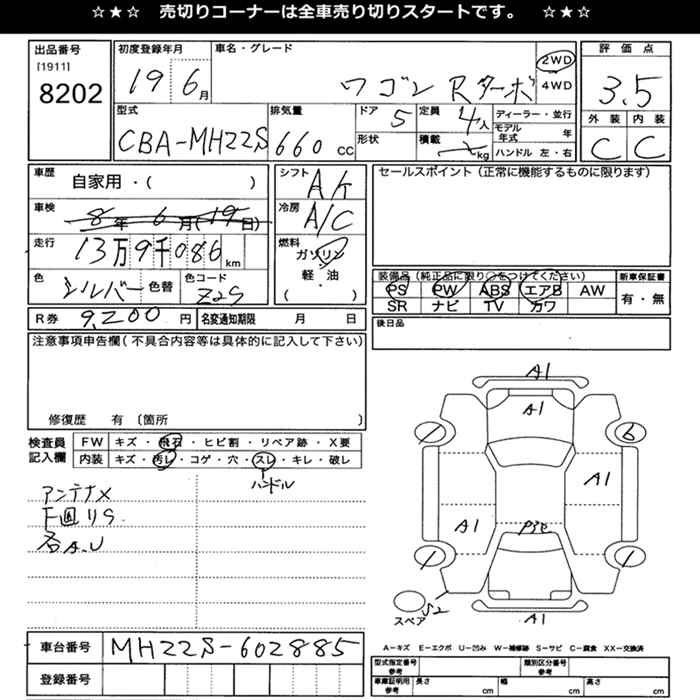 ☆★☆ 売切りコーナーは全車売り切りスタートです。 ☆★☆
出品番号
[1911]
8202
初度登録年月
19 6月
車名・グレード
ワゴンRターボ
2WD
4WD
評価点
3.5
外装 内装
C C
型式
CBA-MH22S
排気量
660 CC
ドア 5
形状
定員 4人
積載 kg
ディーラー・並行
モデル年式 年
ハンドル 左・右
車歴
自家用・( )
車検
8年 6月(19日)
走行
13万9千086km
色
シルバー
色替
色コード
Z2S
シフト
AT
冷房
A/C
燃料
ガソリン
軽・油
( )
セールスポイント(正常に機能するものに限ります)
装備品(純正品に限り○をつけてください)
PS PW ABS エアB AW
SR ナビ TV カワ
新車保証書
有・無
後日品
R券 9,200 円
名変通知期限 月 日
注意事項申告欄(不具合内容等は具体的に記入して下さい)
修復歴 有 〔箇所 〕
検査員記入欄
FW キズ・飛石・ヒビ割・リペア跡・X要
内装 キズ・汚レ・コゲ・穴・スレ・キレ・破レ
ハンドル
アンテナX
下回りS
各A.U
A1
A1
6
A1
A1
1
1
スペア
S2
A1
A-キズ E-エクボ U-凹み W-補修跡 S-サビ C-腐食 XX-交換済
車台番号 MH22S-602885
登録番号
型式指定番号 参考
類別区分番号 参考
車庫証明用 参考
長さ cm
幅 cm
高さ cm